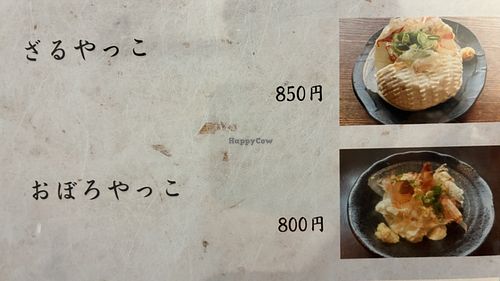 ざるやっこ
850円
HappyCow
おぼろやっこ
800円